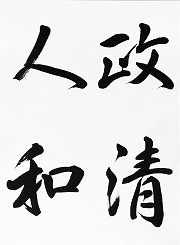 政清
人和